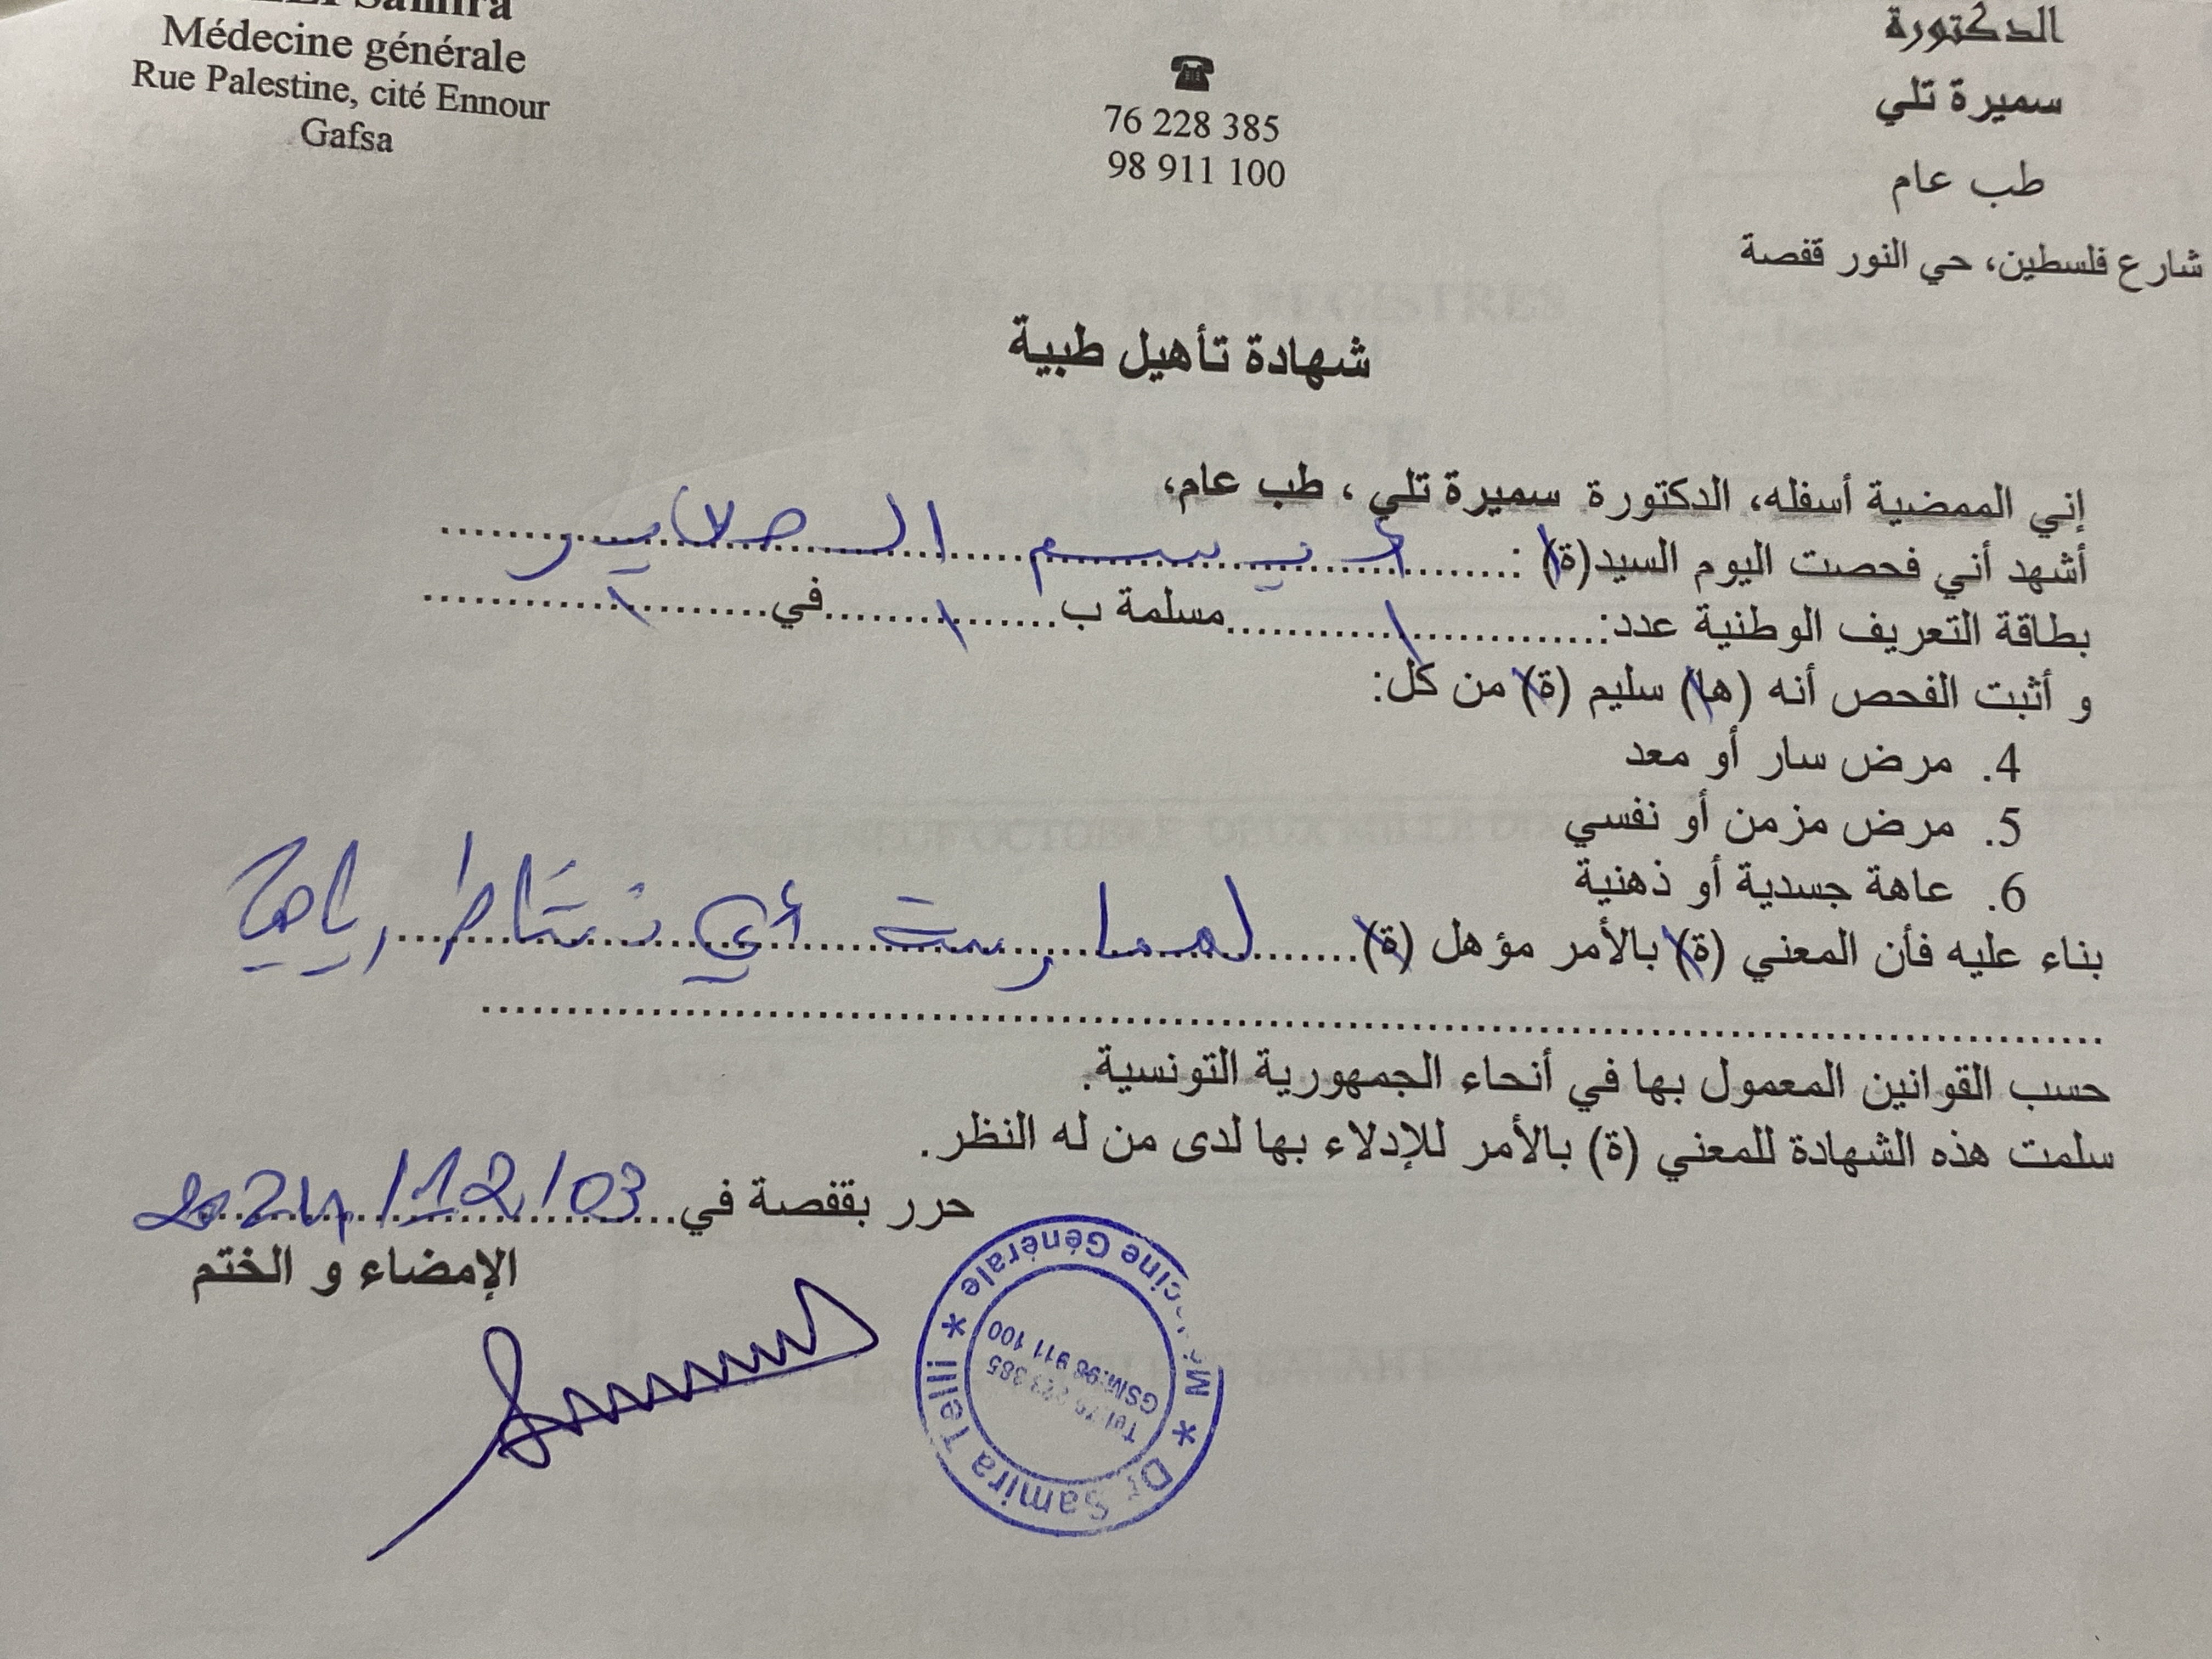 Samira
Médecine générale
Rue Palestine, cité Ennour
Gafsa
76 228 385
98 911 100
الدكتورة
سميرة تلي
طب عام
شارع فلسطين، حي النور قفصة
شهادة تأهيل طبية
إني الممضية أسفله، الدكتورة سميرة تلي ، طب عام،
أشهد أني فحصت اليوم السيد(ة) :
بطاقة التعريف الوطنية عدد:..........مسلمة ب..........في..........
و أثبت الفحص أنه (ها) سليم (ة) من كل:
4. مرض سار أو معد
5. مرض مزمن أو نفسي
6. عاهة جسدية أو ذهنية
بناء عليه فأن المعني (ة) بالأمر مؤهل (ة) لممارست أي نشاط رياضي
حسب القوانين المعمول بها في أنحاء الجمهورية التونسية.
سلمت هذه الشهادة للمعني (ة) بالأمر للإدلاء بها لدى من له النظر.
حرر بقفصة في 2024/12/03
الإمضاء و الختم
Dr Samira Telli * Médecine Générale *
Tel:76 228 385
GSM:98 911 100